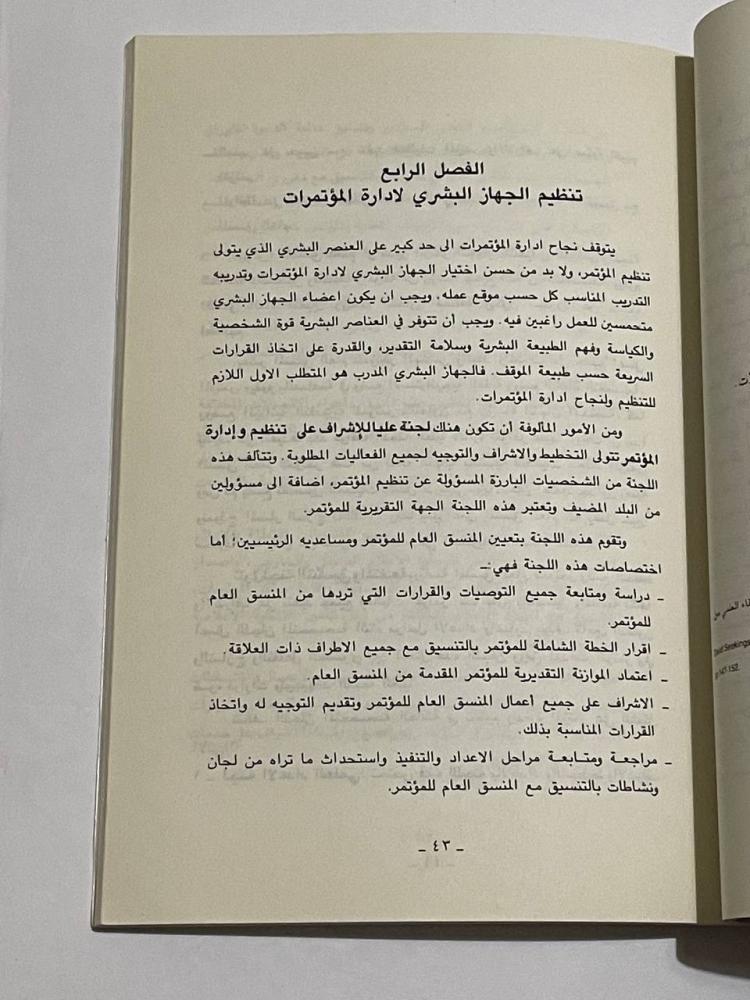 الفصل الرابع
تنظيم الجهاز البشري لادارة المؤتمرات
يتوقف نجاح ادارة المؤتمرات الى حد كبير على العنصر البشري الذي يتولى
تنظيم المؤتمر، ولا بد من حسن اختيار الجهاز البشري لادارة المؤتمرات وتدريبه
التدريب المناسب كل حسب موقع عمله، ويجب ان يكون اعضاء الجهاز البشري
متحمسين للعمل راغبين فيه. ويجب أن تتوفر في العناصر البشرية قوة الشخصية
والكياسة وفهم الطبيعة البشرية وسلامة التقدير، والقدرة على اتخاذ القرارات
السريعة حسب طبيعة الموقف. فالجهاز البشري المدرب هو المتطلب الاول اللازم
للتنظيم ولنجاح ادارة المؤتمرات.
ومن الأمور المألوفة أن تكون هناك لجنة عليا للإشراف على تنظيم وإدارة
المؤتمر تتولى التخطيط والاشراف والتوجيه لجميع الفعاليات المطلوبة. وتتألف هذه
اللجنة من الشخصيات البارزة المسؤولة عن تنظيم المؤتمر، اضافة الى مسؤولين
من البلد المضيف وتعتبر هذه اللجنة الجهة التقريرية للمؤتمر.
وتقوم هذه اللجنة بتعيين المنسق العام للمؤتمر ومساعديه الرئيسيين؛ أما
اختصاصات هذه اللجنة فهي:ـ
ـ دراسة ومتابعة جميع التوصيات والقرارات التي تردها من المنسق العام
للمؤتمر.
ـ اقرار الخطة الشاملة للمؤتمر بالتنسيق مع جميع الاطراف ذات العلاقة.
ـ اعتماد الموازنة التقديرية للمؤتمر المقدمة من المنسق العام.
ـ الاشراف على جميع أعمال المنسق العام للمؤتمر وتقديم التوجيه له واتخاذ
القرارات المناسبة بذلك.
ـ مراجعة ومتابعة مراحل الاعداد والتنفيذ واستحداث ما تراه من لجان
ونشاطات بالتنسيق مع المنسق العام للمؤتمر.
ـ ٤٣ ـ
p 147.152.